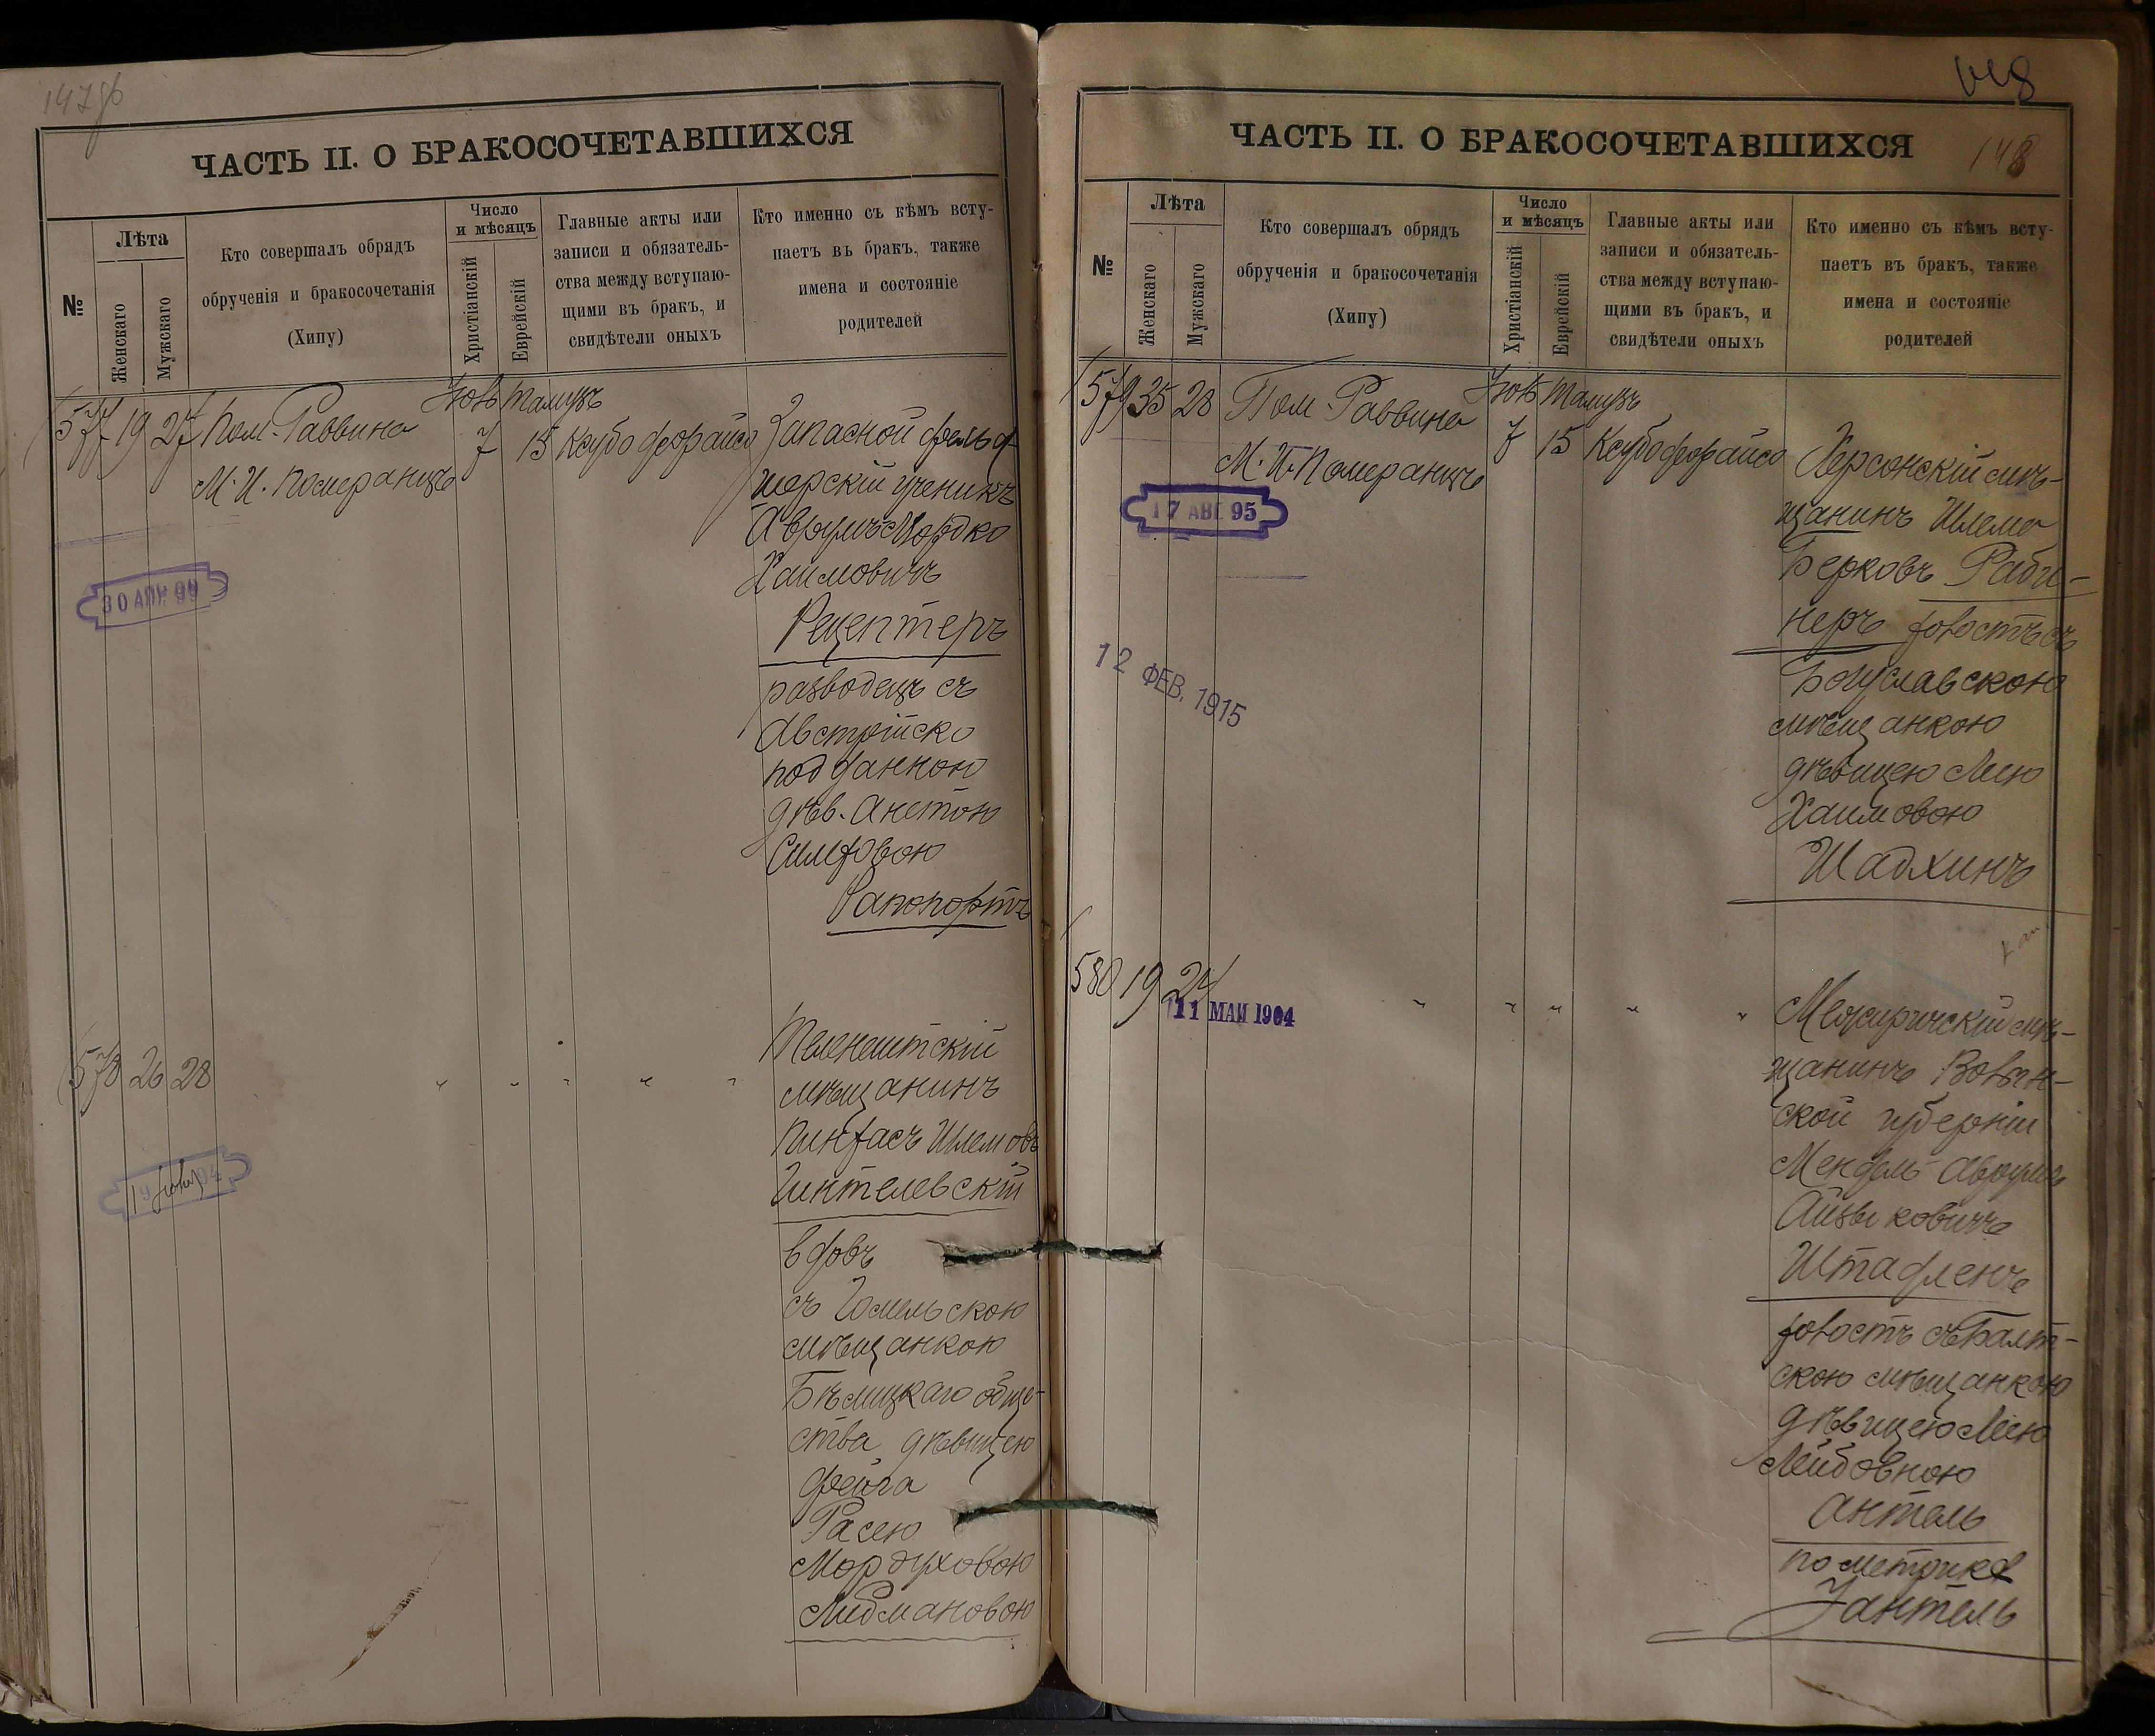 147об
ЧАСТЬ II. О БРАКОСОЧЕТАВШИХСЯ
№
Лѣта
Женскаго
Мужскаго
Кто совершалъ обрядъ
обрученія и бракосочетанія
(Хипу)
Число
и мѣсяцъ
Христіанскій
Еврейскій
Главные акты или
записи и обязатель-
ства между вступаю-
щими въ бракъ, и
свидѣтели оныхъ
Кто именно съ кѣмъ всту-
паетъ въ бракъ, также
имена и состояніе
родителей
Тамузъ
577 19 27 Пом. Раввина 7 15 Ксубо деорайсо Запасной фельд-
М. И. Померанцъ
шерскій ученикъ
Аврумъ Мордко
Хаимовичъ
Рецептеръ
разводецъ съ
Австрійско
подданною
дѣв. Анетою
Рапопортъ
30 АПР 99
578 26 28 " " " " "
Теленештскій
мѣщанинъ
Пинхасъ Шлемовъ
вдовъ
съ Гомельскою
мѣщанкою
Бѣлицкаго обще-
ства дѣвицею
Фейга
Расею
Мордуховою
Лидмановою
148
148
ЧАСТЬ II. О БРАКОСОЧЕТАВШИХСЯ
№
Лѣта
Женскаго
Мужскаго
Кто совершалъ обрядъ
обрученія и бракосочетанія
(Хипу)
Число
и мѣсяцъ
Христіанскій
Еврейскій
Главные акты или
записи и обязатель-
ства между вступаю-
щими въ бракъ, и
свидѣтели оныхъ
Кто именно съ кѣмъ всту-
паетъ въ бракъ, также
имена и состояніе
родителей
Тамузъ
579 35 28 Пом. Раввина 7 15 Ксубо деорайсо Херсонскій мѣ-
М. И. Померанцъ
17 АВГ 95
щанинъ Шлема
Берковъ Раби-
неръ холостъ съ
12 ФЕВ. 1915
Богуславскою
мѣщанкою
дѣвицею Леею
Хаимовою
Шадхинъ
580 19 24 " " " " "
11 МАИ 1904
Межиричскій мѣ-
щанинъ Волын-
ской губерніи
Мендель Аврумъ
Айзыковичъ
Штадленъ
холостъ съ Балт-
скою мѣщанкою
дѣвицею Леею
Лейбовною
Антель
по метрике
Зантель